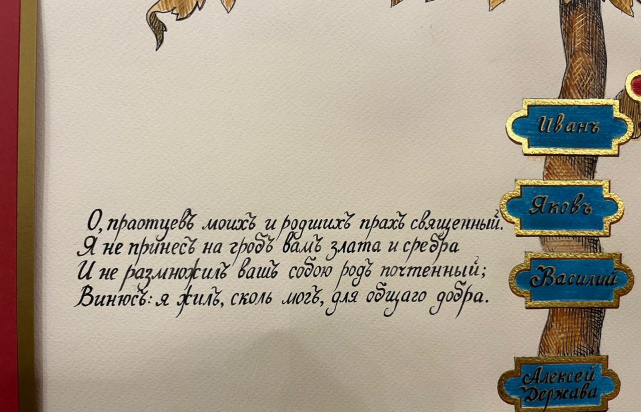 О, праотцевъ моихъ и родшихъ прахъ священный.
Я не принесъ на гробъ вамъ злата и сребра
И не размножилъ вашъ собою родъ почтенный;
Винюсь: я жилъ, сколь могъ, для общаго добра.
Иванъ
Яковъ
Василий
Алексей
Держава